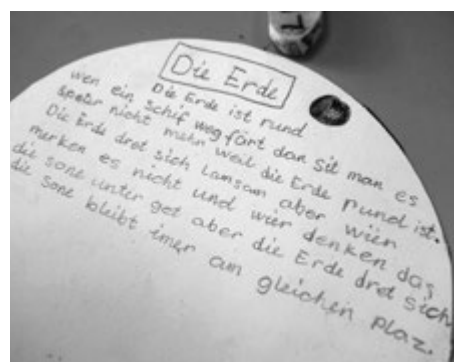 Die Erde
Die Erde ist rund
wen ein Schif weg färt dan sit man es
speter nicht mehr weil die Erde rund ist.
Die Erde dret sich lamsam aber wier
merken es nicht und wier denken das
die sone unter get aber die Erde dret sich
die Sone bleibt imer am gleichen plaz.